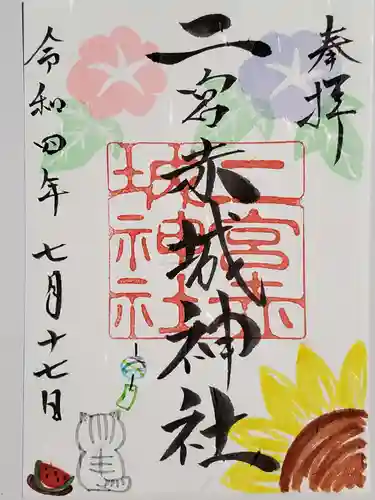 奉拝
二宮赤城神社
二宮赤
城神社
令和四年 七月十七日